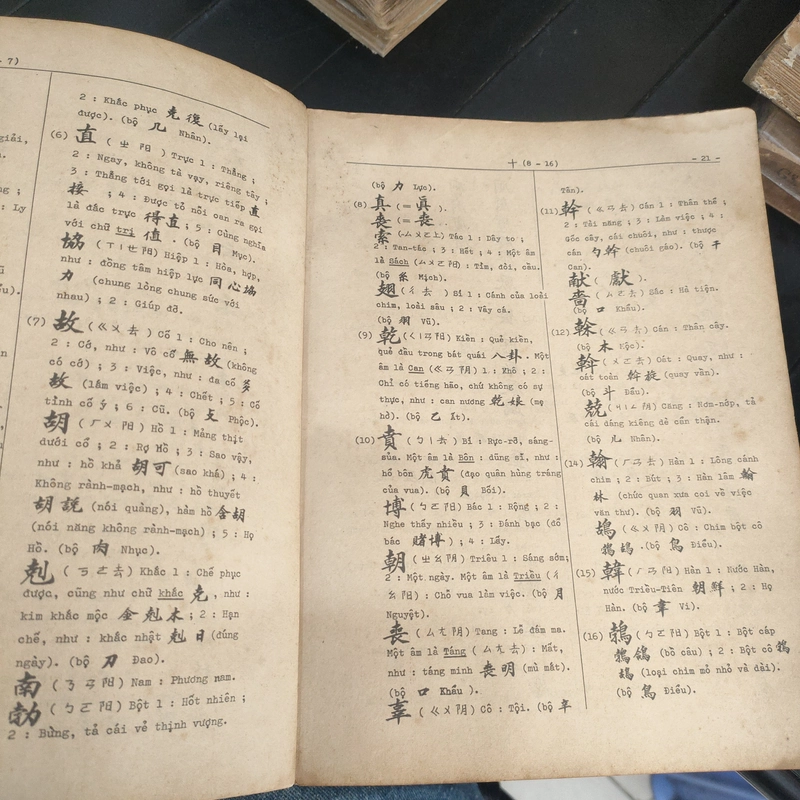 . 7)
giải,
; Ly
2 : Khắc phục 克復 (lấy lại
được). (bộ 几 Nhân).
(6) 直 (ㄓ 阳) Trực 1 : Thẳng ;
2 : Ngay, không tà vạy, riêng tây ;
3 : Thẳng tới gọi là trực tiếp 直
接 ; 4 : Được tỏ nỗi oan ra gọi
là đắc trực 得直 ; 5 : Cùng nghĩa
với chữ trị 值 . (bộ 目 Mục).
協 (ㄒㄧㄝ阳) Hiệp 1 : Hòa, hợp,
như : đồng tâm hiệp lực 同心協
力 (chung lòng chung sức với
nhau) ; 2 : Giúp đỡ.
(7) 故 (ㄍㄨ去) Cố 1 : Cho nên ;
2 : Cớ, như : Vô cố 無故 (không
có cớ) ; 3 : Việc, như : đa cố 多
故 (lắm việc) ; 4 : Chết ; 5 : Cố
tình cố ý ; 6 : Cũ. (bộ 攴 Phộc).
胡 (ㄏㄨ阳) Hồ 1 : Mảng thịt
dưới cổ ; 2 : Rợ Hồ ; 3 : Sao vậy,
như : hồ khả 胡可 (sao khá) ; 4 :
Không rành-mạch, như : hồ thuyết
胡說 (nói quàng), hàm hồ 含胡
(nói năng không rành-mạch) ; 5 : Họ
Hồ. (bộ 肉 Nhục).
剋 (ㄎㄜ去) Khắc 1 : Chế phục
được, cũng như chữ khắc 克, như :
kim khắc mộc 金剋木 ; 2 : Hạn
chế, như : khắc nhật 剋日 (đúng
ngày). (bộ 刀 Đao).
南 (ㄋㄢ阳) Nam : Phương nam.
勃 (ㄅㄛ阳) Bột 1 : Hốt nhiên ;
2 : Bừng, tả cái vẻ thịnh vượng.
十 (8 - 16)
- 21 -
(bộ 力 Lực).
(8) 真 (= 眞 ).
丧 (= 喪 ).
索 (ㄙㄨㄛ上) Tác 1 : Dây to ;
2 : Tan-tác ; 3 : Hết ; 4 : Một âm
là Sách (ㄙㄨㄛ阳) : Tìm, đòi, cầu.
(bộ 糸 Mịch).
翅 (ㄔ去) Sí 1 : Cánh của loài
chim, loài sâu ; 2 : Vây cá.
(bộ 羽 Vũ).
(9) 乾 (ㄑㄧㄢ阳) Kiền : Quẻ kiền,
quẻ đầu trong bát quái 八卦 . Một
âm là Can (ㄍㄢ阴) 1 : Khô ; 2 :
Chỉ có tiếng hão, chứ không có sự
thực, như : can nương 乾娘 (mẹ
hờ). (bộ 乙 Ất).
(10) 賁 (ㄅㄧ去) Bí : Rực-rỡ, sáng-
sủa. Một âm là Bôn : dũng sĩ, như :
hổ bôn 虎賁 (đạo quân hùng tráng
của vua). (bộ 貝 Bối).
博 (ㄅㄛ阳) Bác 1 : Rộng ; 2 :
Nghe thấy nhiều ; 3 : Đánh bạc (đổ
bác 賭博) ; 4 : Lấy.
朝 (ㄓㄠ阴) Triêu 1 : Sáng sớm;
2 : Một ngày. Một âm là Triều (ㄔ
ㄠ阳) : Chỗ vua làm việc. (bộ 月
Nguyệt).
喪 (ㄙㄤ阴) Tang : Lễ đám ma.
Một âm là Táng (ㄙㄤ去) : Mất,
như : táng minh 喪明 (mù mắt).
(bộ 口 Khẩu ).
辜 (ㄍㄨ阴) Cô : Tội. (bộ 辛
Tân).
(11) 幹 (ㄍㄢ去) Cán 1 : Thân thể ;
2 : Tài năng ; 3 : Làm việc ; 4 :
Gốc cây, cái chuôi, như : thược
cán 勺幹 (chuôi gáo). (bộ 干
Can).
献 ( 獻 ).
嗇 (ㄙㄜ去) Sắc : Hà tiện.
(bộ 口 Khẩu).
(12) 榦 (ㄍㄢ去) Cán : Thân cây.
(bộ 木 Mộc).
斡 (ㄨㄛ去) Oát : Quay, như :
oát toàn 斡旋 (quay vần).
(bộ 斗 Đẩu).
兢 (ㄐㄧㄥ阴) Căng : Nơm-nớp, tả
cái dáng kiêng dè cẩn thận.
(bộ 儿 Nhân).
(14) 翰 (ㄏㄢ去) Hàn 1 : Lông cánh
chim ; 2 : Bút ; 3 : Hàn lâm 翰
林 (chức quan xưa coi về việc
văn thư). (bộ 羽 Vũ).
鴣 (ㄍㄨ阴) Cô : Chim bột cô
鵓鴣. (bộ 鳥 Điểu).
(15) 韓 (ㄏㄢ阳) Hàn 1 : Nước Hàn,
nước Triều-Tiên 朝鮮 ; 2 : Họ
Hàn. (bộ 韋 Vi).
(16) 鵓 (ㄅㄛ阳) Bột 1 : Bột cáp
鵓鴿 (bồ câu) ; 2 : Bột cô 鵓
鴣 (loại chim mỏ nhỏ và dài).
(bộ 鳥 Điểu).